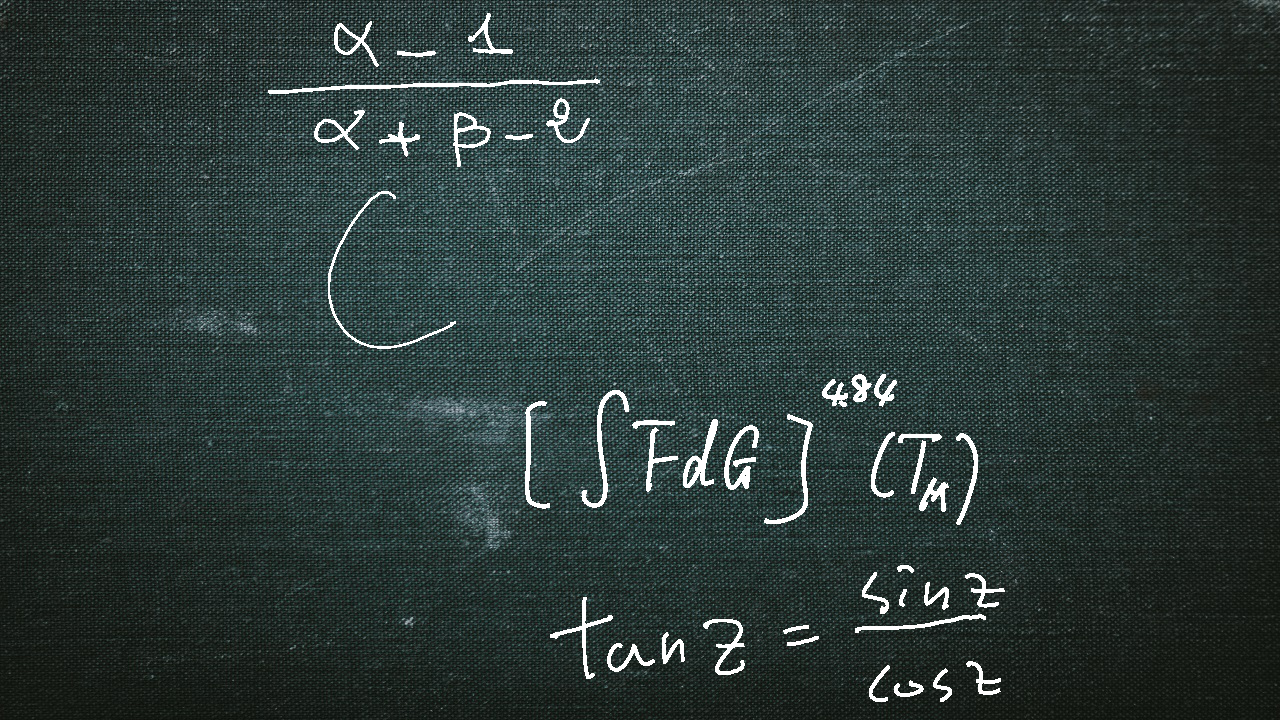 \frac{\alpha - 1}{\alpha + \beta - 2}
C
[\int F dG]^{484} (T_M)
\tan z = \frac{\sin z}{\cos z}